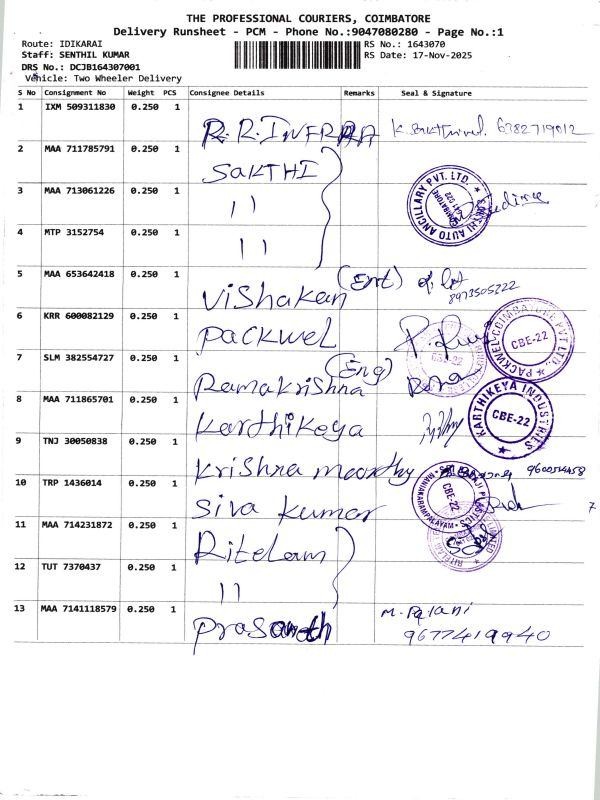 THE PROFESSIONAL COURIERS, COIMBATORE
Delivery Runsheet - PCM - Phone No.:9047080280 - Page No.:1
Route: IDIKARAI
RS No.: 1643070
Staff: SENTHIL KUMAR
RS Date: 17-Nov-2025
DRS No.: DCJB164307001
Vehicle: Two Wheeler Delivery
S No Consignment No Weight PCS Consignee Details Remarks Seal & Signature
1 IXM 509311830 0.250 1 R.R.INFRAA K. 6382719012
2 MAA 711785791 0.250 1 SAKTHI
3 MAA 713061226 0.250 1 11
SAKTHI AUTO ANCILLARY PVT. LTD. COIMBATORE 641 022
4 MTP 3152754 0.250 1 11
5 MAA 653642418 0.250 1 Vishakan (Ent) 8973505222
6 KRR 600082129 0.250 1 Packwel
PACKWEL COIMBATORE PVT LTD. CBE-22
7 SLM 382554727 0.250 1 Ramakrishna (Eng) Rama
8 MAA 711865701 0.250 1 Karthikeya
KARTHIKEYA INDUSTRIES CBE-22
9 TNJ 30050838 0.250 1 Krishna moorthy
10 TRP 1436014 0.250 1 Siva kumar
CBE-22
7
11 MAA 714231872 0.250 1 Ritelam
12 TUT 7370437 0.250 1 11
13 MAA 7141118579 0.250 1 Prasanth M. Palani
9677419940